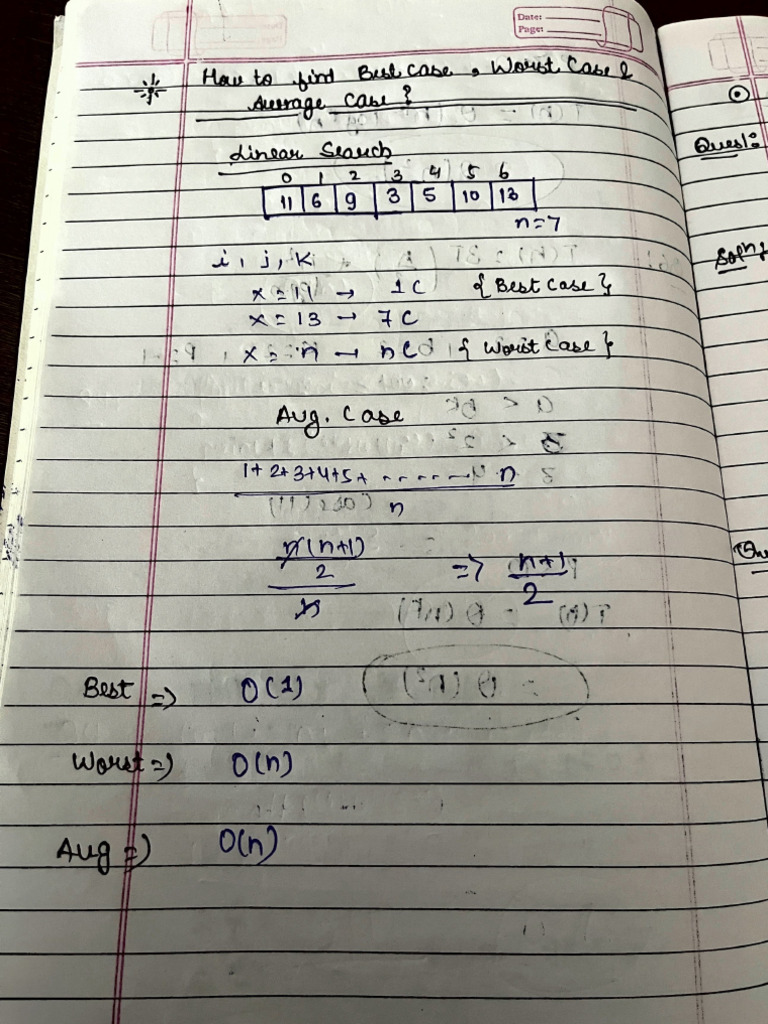 Date:
Page:
How to find Best Case, Worst Case &
Average Case?
Linear Search
0 1 2 3 4 5 6
11 6 9 3 5 10 13
n=7
i, j, k
x = 11 → 1C {Best Case}
x = 13 → 7C
x = n → nC {Worst Case}
Avg. Case
1+2+3+4+5+ ......→ n
n
n(n+1)
2
n
=> n+1
2
Best => O(1)
Worst => O(n)
Avg => O(n)
Ques1:
Soln: